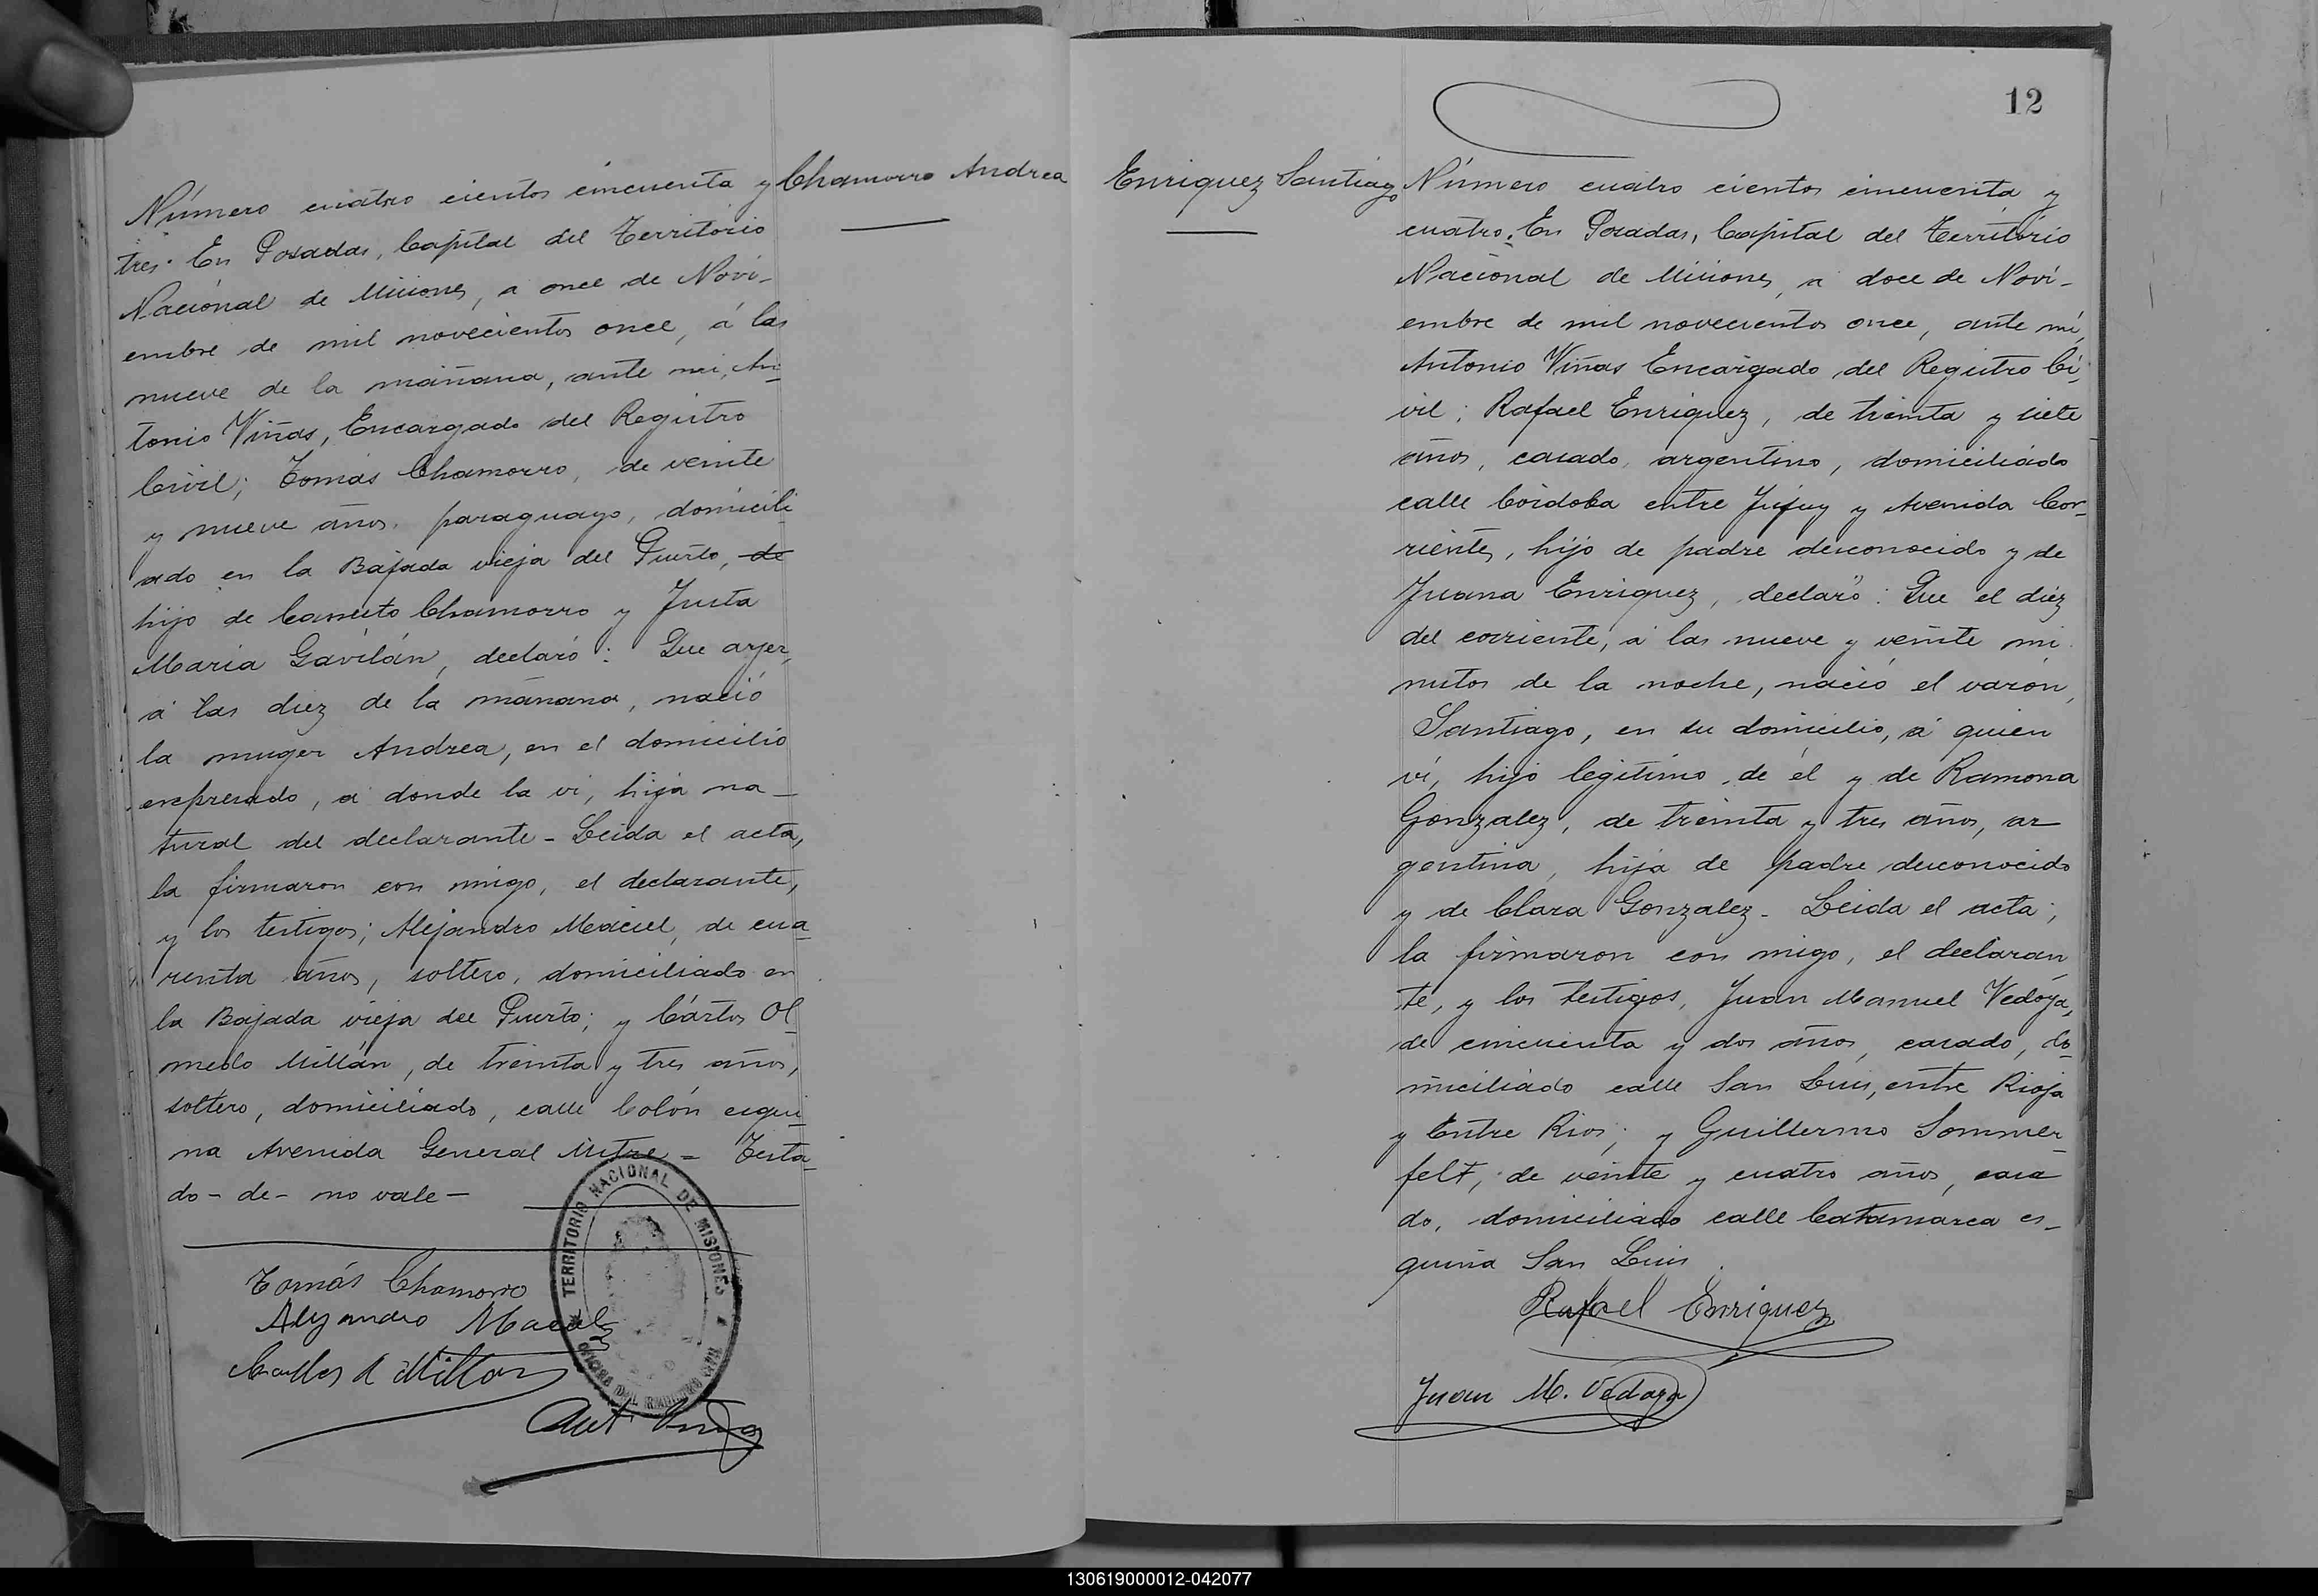 Chamorro Andrea
Número cuatro cientos cincuenta y
tres. En Posadas, Capital del Territorio
Nacional de Misiones, a once de Novi-
embre de mil novecientos once, á las
nueve de la mañana, ante mi, An-
tonio Viñas, Encargado del Registro
Civil; Tomás Chamorro, de veinte
y nueve años, paraguayo, domicili
ado en la Bajada vieja del Puerto, de
hijo de Canuto Chamorro y Justa
María Gavilán, declaró: Que ayer,
á las diez de la mañana, nació
la muger Andrea, en el domicilio
expresado, a donde la vi, hija na-
tural del declarante - Leida el acta,
la firmaron con migo, el declarante,
y los testigos; Alejandro Maciel, de cua-
renta años, soltero, domiciliado en
la Bajada vieja del Puerto; y Cárlos Ol-
medo Millán, de treinta y tres años,
soltero, domiciliado, calle Colón esqui-
na Avenida General Mitre = Testa-
do - de - no vale -
TERRITORIO NACIONAL DE MISIONES
OFICINA DEL REGISTRO CIVIL
Tomás Chamorro
Alejandro Maciel
Carlos O Millan
Ant Viñas
12
Enriquez Santiago
Número cuatro cientos cincuenta y
cuatro. En Posadas, Capital del Territorio
Nacional de Misiones, a doce de Novi-
embre de mil novecientos once, ante mí,
Antonio Viñas Encargado del Registro Ci-
vil; Rafael Enriquez, de treinta y siete
años, casado, argentino, domiciliado
calle Córdoba entre Jujuy y Avenida Cor-
rientes, hijo de padre desconocido y de
Juana Enriquez, declaró: Que el diez
del corriente, á las nueve y veinte mi
nutos de la noche, nació el varón,
Santiago, en su domicilio, á quien
ví, hijo legítimo de él y de Ramona
Gonzalez, de treinta y tres años, ar
gentina, hija de padre desconocido
y de Clara Gonzalez - Leida el acta;
la firmaron con migo, el declaran
te, y los testigos, Juan Manuel Vedoya,
de cincuenta y dos años, casado, do-
miciliado calle San Luis, entre Rioja
y Entre Rios; y Guillermo Sommer-
felt, de veinte y cuatro años, casa
do, domiciliado calle Catamarca es-
quina San Luis.
Rafael Enriquez
Juan M. Vedoya
130619000012-042077